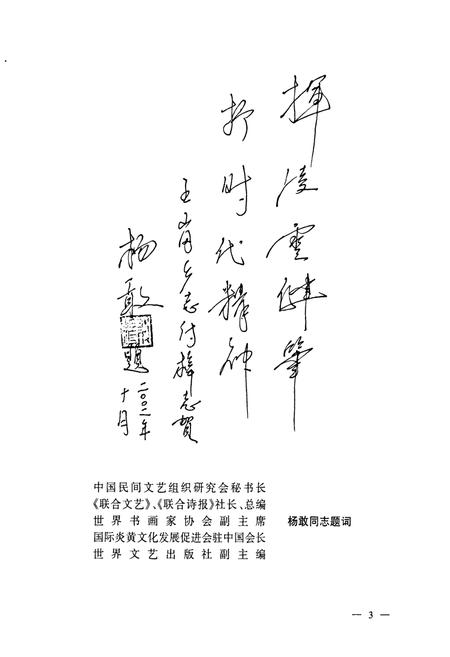 揮凌雲健筆
抒时代精神
王崗乡志付梓志贺
杨敢
题
二〇〇二年
十月
中国民间文艺组织研究会秘书长
《联合文艺》、《联合诗报》社长、总编
世界书画家协会副主席
国际炎黄文化发展促进会驻中国会长
世界文艺出版社副主编
杨敢同志题词
— 3 —